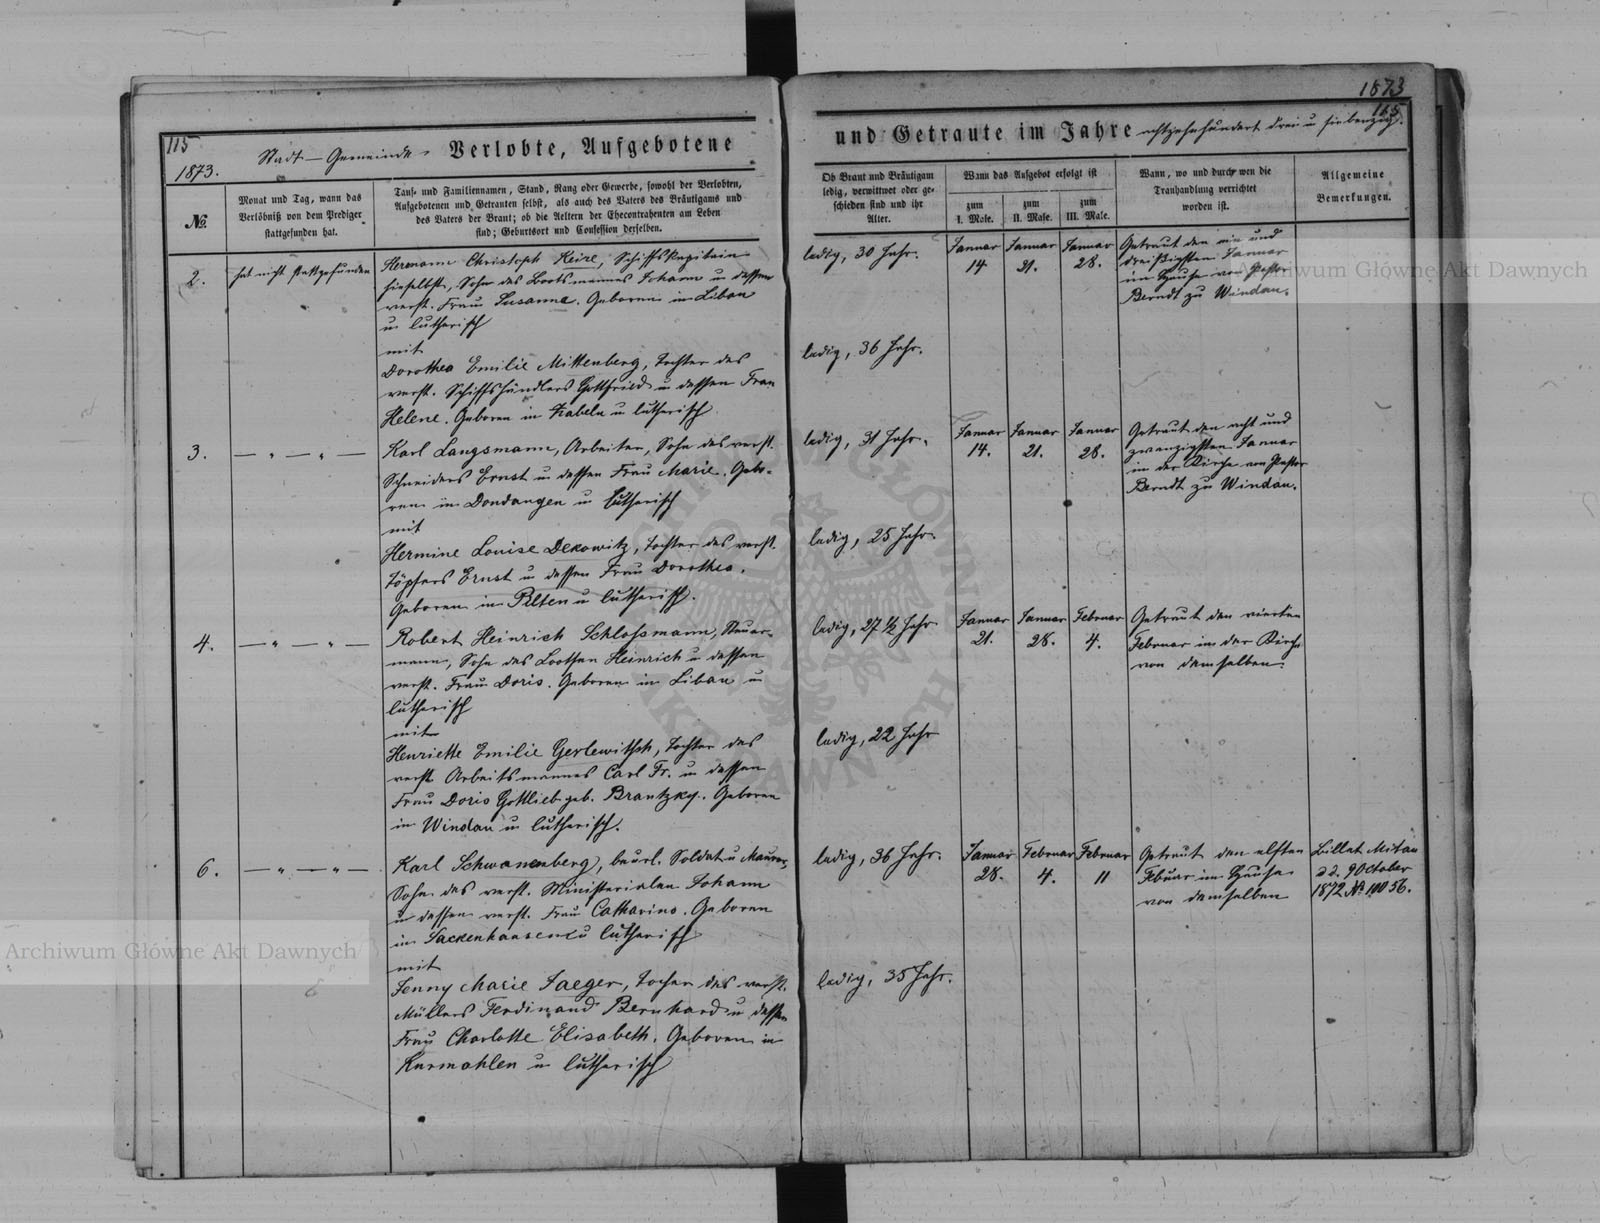 1873
115
115
1873. Stadt-Gemeinde. Verlobte, Aufgebotene
und Getraute im Jahre achtzehnhundert drei u siebenzig.
№
Monat und Tag, wann das
Verlöbniß von dem Prediger
stattgefunden hat.
Tauf- und Familiennamen, Stand, Rang oder Gewerbe, sowohl der Verlobten,
Aufgebotenen und Getrauten selbst, als auch des Vaters des Bräutigams und
des Vaters der Braut; ob die Aeltern der Ehecontrahenten am Leben
sind; Geburtsort und Confession derselben.
Ob Braut und Bräutigam
ledig, verwittwet oder ge-
schieden sind und ihr
Alter.
Wann das Aufgebot erfolgt ist
zum
I. Male.
zum
II. Male.
zum
III. Male.
Wann, wo und durch wen die
Trauhandlung verrichtet
worden ist.
Allgemeine
Bemerkungen.
2.
hat nicht stattgefunden
Hermann Christoph Keire, Schiffskapitain
hieselbst, Sohn des Bootsmannes Johann u dessen
verst. Frau Susanna. Geboren in Libau
u lutherisch
mit
Dorothea Emilie Mittenberg, Tochter des
verst. Schiffshändlers Gottfried u dessen Frau
Helene. Geboren in Zabeln u lutherisch.
ledig, 30 Jahr.
ledig, 36 Jahr.
Januar
14
Januar
21.
Januar
28.
Getraut den ein und
dreißigsten Januar
im Hause von Pastor
Berndt zu Windau.
3.
— " — " —
Karl Langsmann, Arbeiter, Sohn des verst.
Schneiders Ernst u dessen Frau Marie. Gebo-
ren in Dondangen u lutherisch
mit
Hermine Louise Dekowitz, Tochter des verst.
Töpfers Ernst u dessen Frau Dorothea.
Geboren in Pilten u lutherisch.
ledig, 31 Jahr.
ledig, 25 Jahr.
Januar
14.
Januar
21.
Januar
28.
Getraut den acht und
zwanzigsten Januar
in der Kirche von Pastor
Berndt zu Windau.
4.
— " — " —
Robert Heinrich Schlossmann, Steuer-
mann, Sohn des Lootsen Heinrich u dessen
verst. Frau Doris. Geboren in Libau u
lutherisch
mit
Henriette Emilie Gerlewitsch, Tochter des
verst Arbeitsmannes Carl Fr. u dessen
Frau Doris Gottlieb geb. Brantzky. Geboren
in Windau u lutherisch.
ledig, 27 ½ Jahr
ledig, 22 Jahr
Januar
21.
Januar
28.
Februar
4.
Getraut den vierten
Februar in der Kirche
von demselben.
6.
— " — " —
Karl Schwanenberg, beurl. Soldat u Maurer,
Sohn des verst. Ministerialen Johann
u dessen verst. Frau Catharina. Geboren
in Sackenhausen u lutherisch
mit
Jenny Marie Jaeger, Tocher des verst.
Müllers Ferdinand Bernhard u dessen
Frau Charlotte Elisabeth. Geboren in
Kurmahlen u lutherisch
ledig, 36 Jahr.
ledig, 35 Jahr.
Januar
28.
Februar
4.
Februar
11
Getraut den elften
Februar im Hause
von demselben
Billet Mitau
d d. 9 October
1872 №
Archiwum Główne Akt Dawnych
Archiwum Główne Akt Dawnych
ARCHIWUM GŁÓWNE AKT DAWNYCH